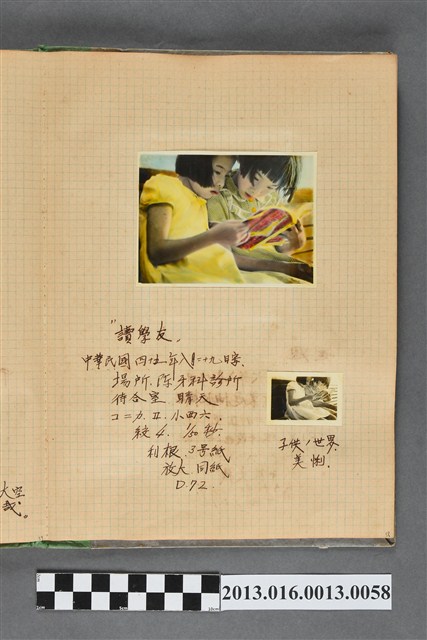 "讀學友„
中華民國四十五年八月二十九日字.
場所. 陈牙科診所
待合室 晴天
コニカ.Ⅱ. 小西六.
絞 4. 1/50 秒.
利根.3号紙
放大.同紙
D.72.
子供ノ世界.
美 俐.
大空
哉。
2013.016.0013.0058